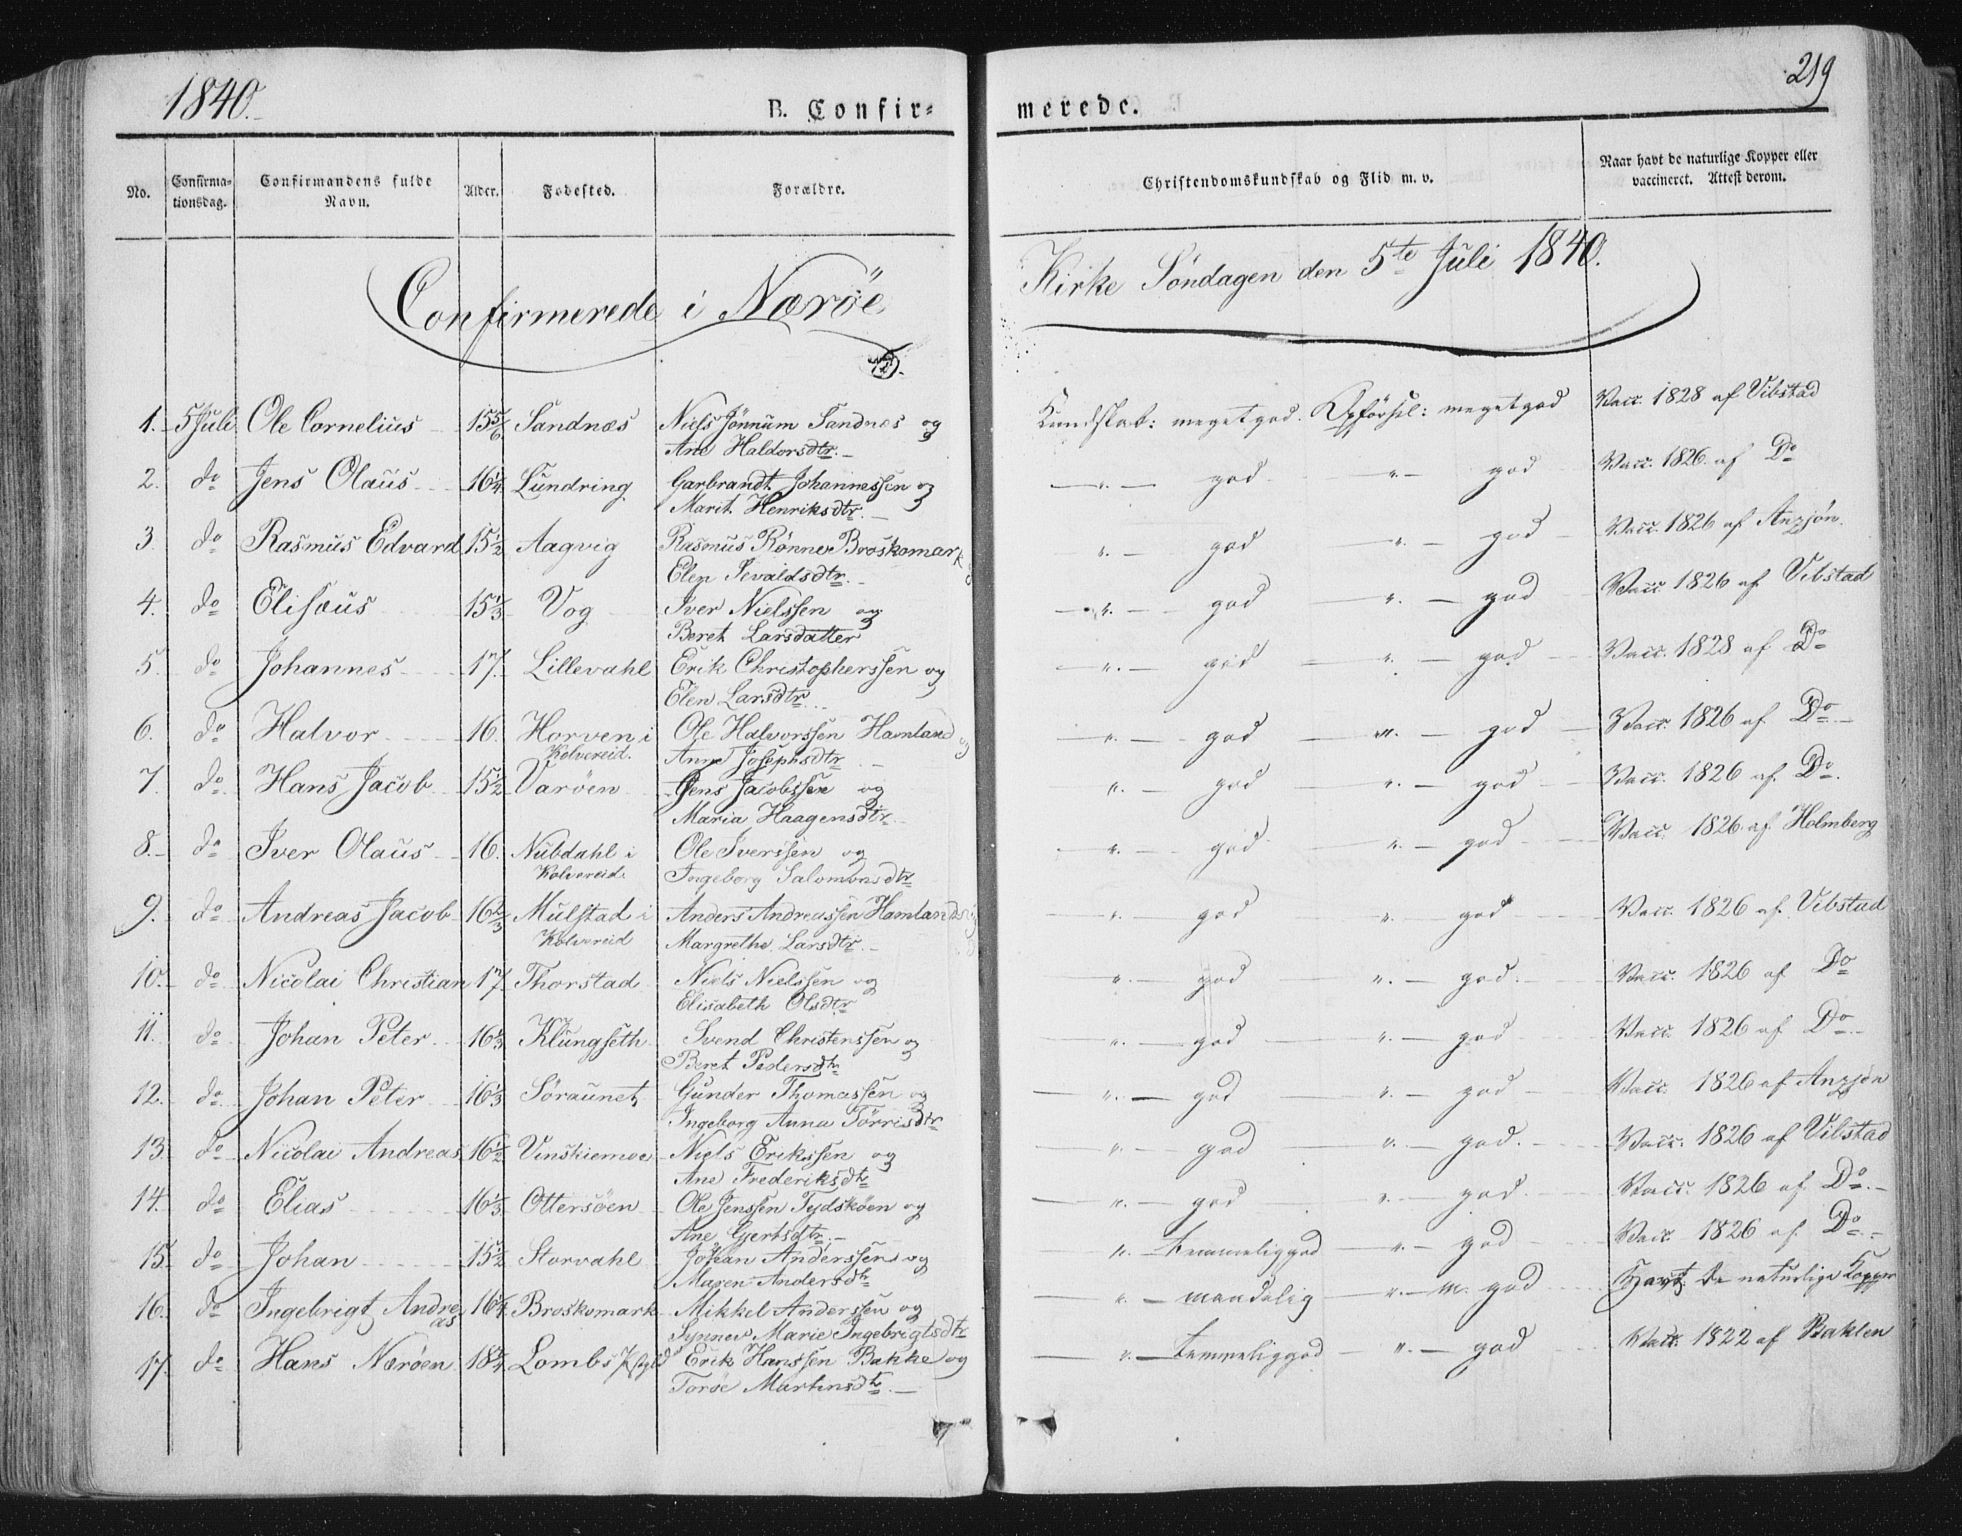 1840.
B. Confir=
merede.
219
No.
Confirma-
tionsdag.
Confirmandens fulde
Navn.
Alder.
Fødested.
Forældre.
Christendomskundskab og Flid m. v.
Naar havt de naturlige Kopper eller
vaccineret. Attest derom.
Confirmerede i Nærøe
Kirke Søndagen den 5te Juli 1840.
1. 5 Juli Ole Cornelius 15 5/6 Sandnæs Niels Jønnum Sandnes og
Ane Haldorsdtr.
Kundskab: megetgod. Opførsel: megetgod Vacc. 1828 af Vibstad
2. do Jens Olaus 16 1/4 Lundring Garbrandt Johannessen og
Marit Henriksdtr.
" god " god Vacc. 1826 af Do
3. do Rasmus Edvard 15 1/2 Aagvig Rasmus Rønnev Broskomark og
Elen Sevaldsdtr.
" god " god Vacc. 1826 af Anzjøn.
4. do Elisæus 15 1/3 Vog Iver Nielssen og
Beret Larsdatter
" god " god Vacc. 1826 af Vibstad
5. do Johannes 17. Lillevahl Erik Christopherssen og
Elen Larsdtr.
" god " god Vacc. 1828 af Do
6. do Halvor 16. Horven i
Kolvereid.
Ole Halvorssen Hamland og
Anne Josephsdtr
" god " god Vacc. 1826 af Do
7. do Hans Jacob 15 1/2 Varøen Jens Jacobssen og
Maria Haagensdtr.
" god " god Vacc. 1826 af Do.
8. do Iver Olaus 16. Nubdahl i
Kolvereid.
Ole Iverssen og
Ingeborg Salomonsdtr
" god " god Vacc. 1826 af Holmberg
9. do Andreas Jacob 16 2/3 Mulstad i
Kolvereid
Anders Andreassen Hamland og
Margrethe Larsdtr.
" god " god Vacc. 1826 af Vibstad
10. do Nicolai Christian 17. Thorstad Niels Nielssen og
Elisabeth Olsdtr
" god " god. Vacc. 1826 af Do
11. do Johan Peter 16 1/3 Klungseth Svend Christenssen og
Beret Pedersdtr
" god " god Vacc. 1826 af Do
12. do Johan Peter 16 1/3 Søraunet Gunder Thomassen og
Ingeborg Anna Tørrisdtr
" god " god Vacc. 1826 af Anzjøn
13. do Nicolai Andreas 16 1/2 Vinskiemoe Niels Erikssen og
Ane Frederiksdtr
" god " god. Vacc. 1826 af Vibstad
14. do Elias 16 1/3 Ottersøen Ole Jenssen Tejdskøen og
Ane Gjertsdtr.
" god " god. Vacc. 1826 af Do.
15. do Johan 15 1/2 Storvahl Johan Anderssen og
Maren Andersdtr
" temmeliggod " god Vacc. 1826 af Do.
16. do Ingebrigt Andreas 16 1/4 Broskomark Mikkel Anderssen og
Synnev Marie Ingebrigtsdtr
" maadelig " m. god Havt de naturlige Kopper
17. do Hans Nærøen 18 1/4 Lombs Erik Hanssen Bakke og
Torøe Martinsdtr.
" temmeliggod " god Vacc. 1822 af Baklen